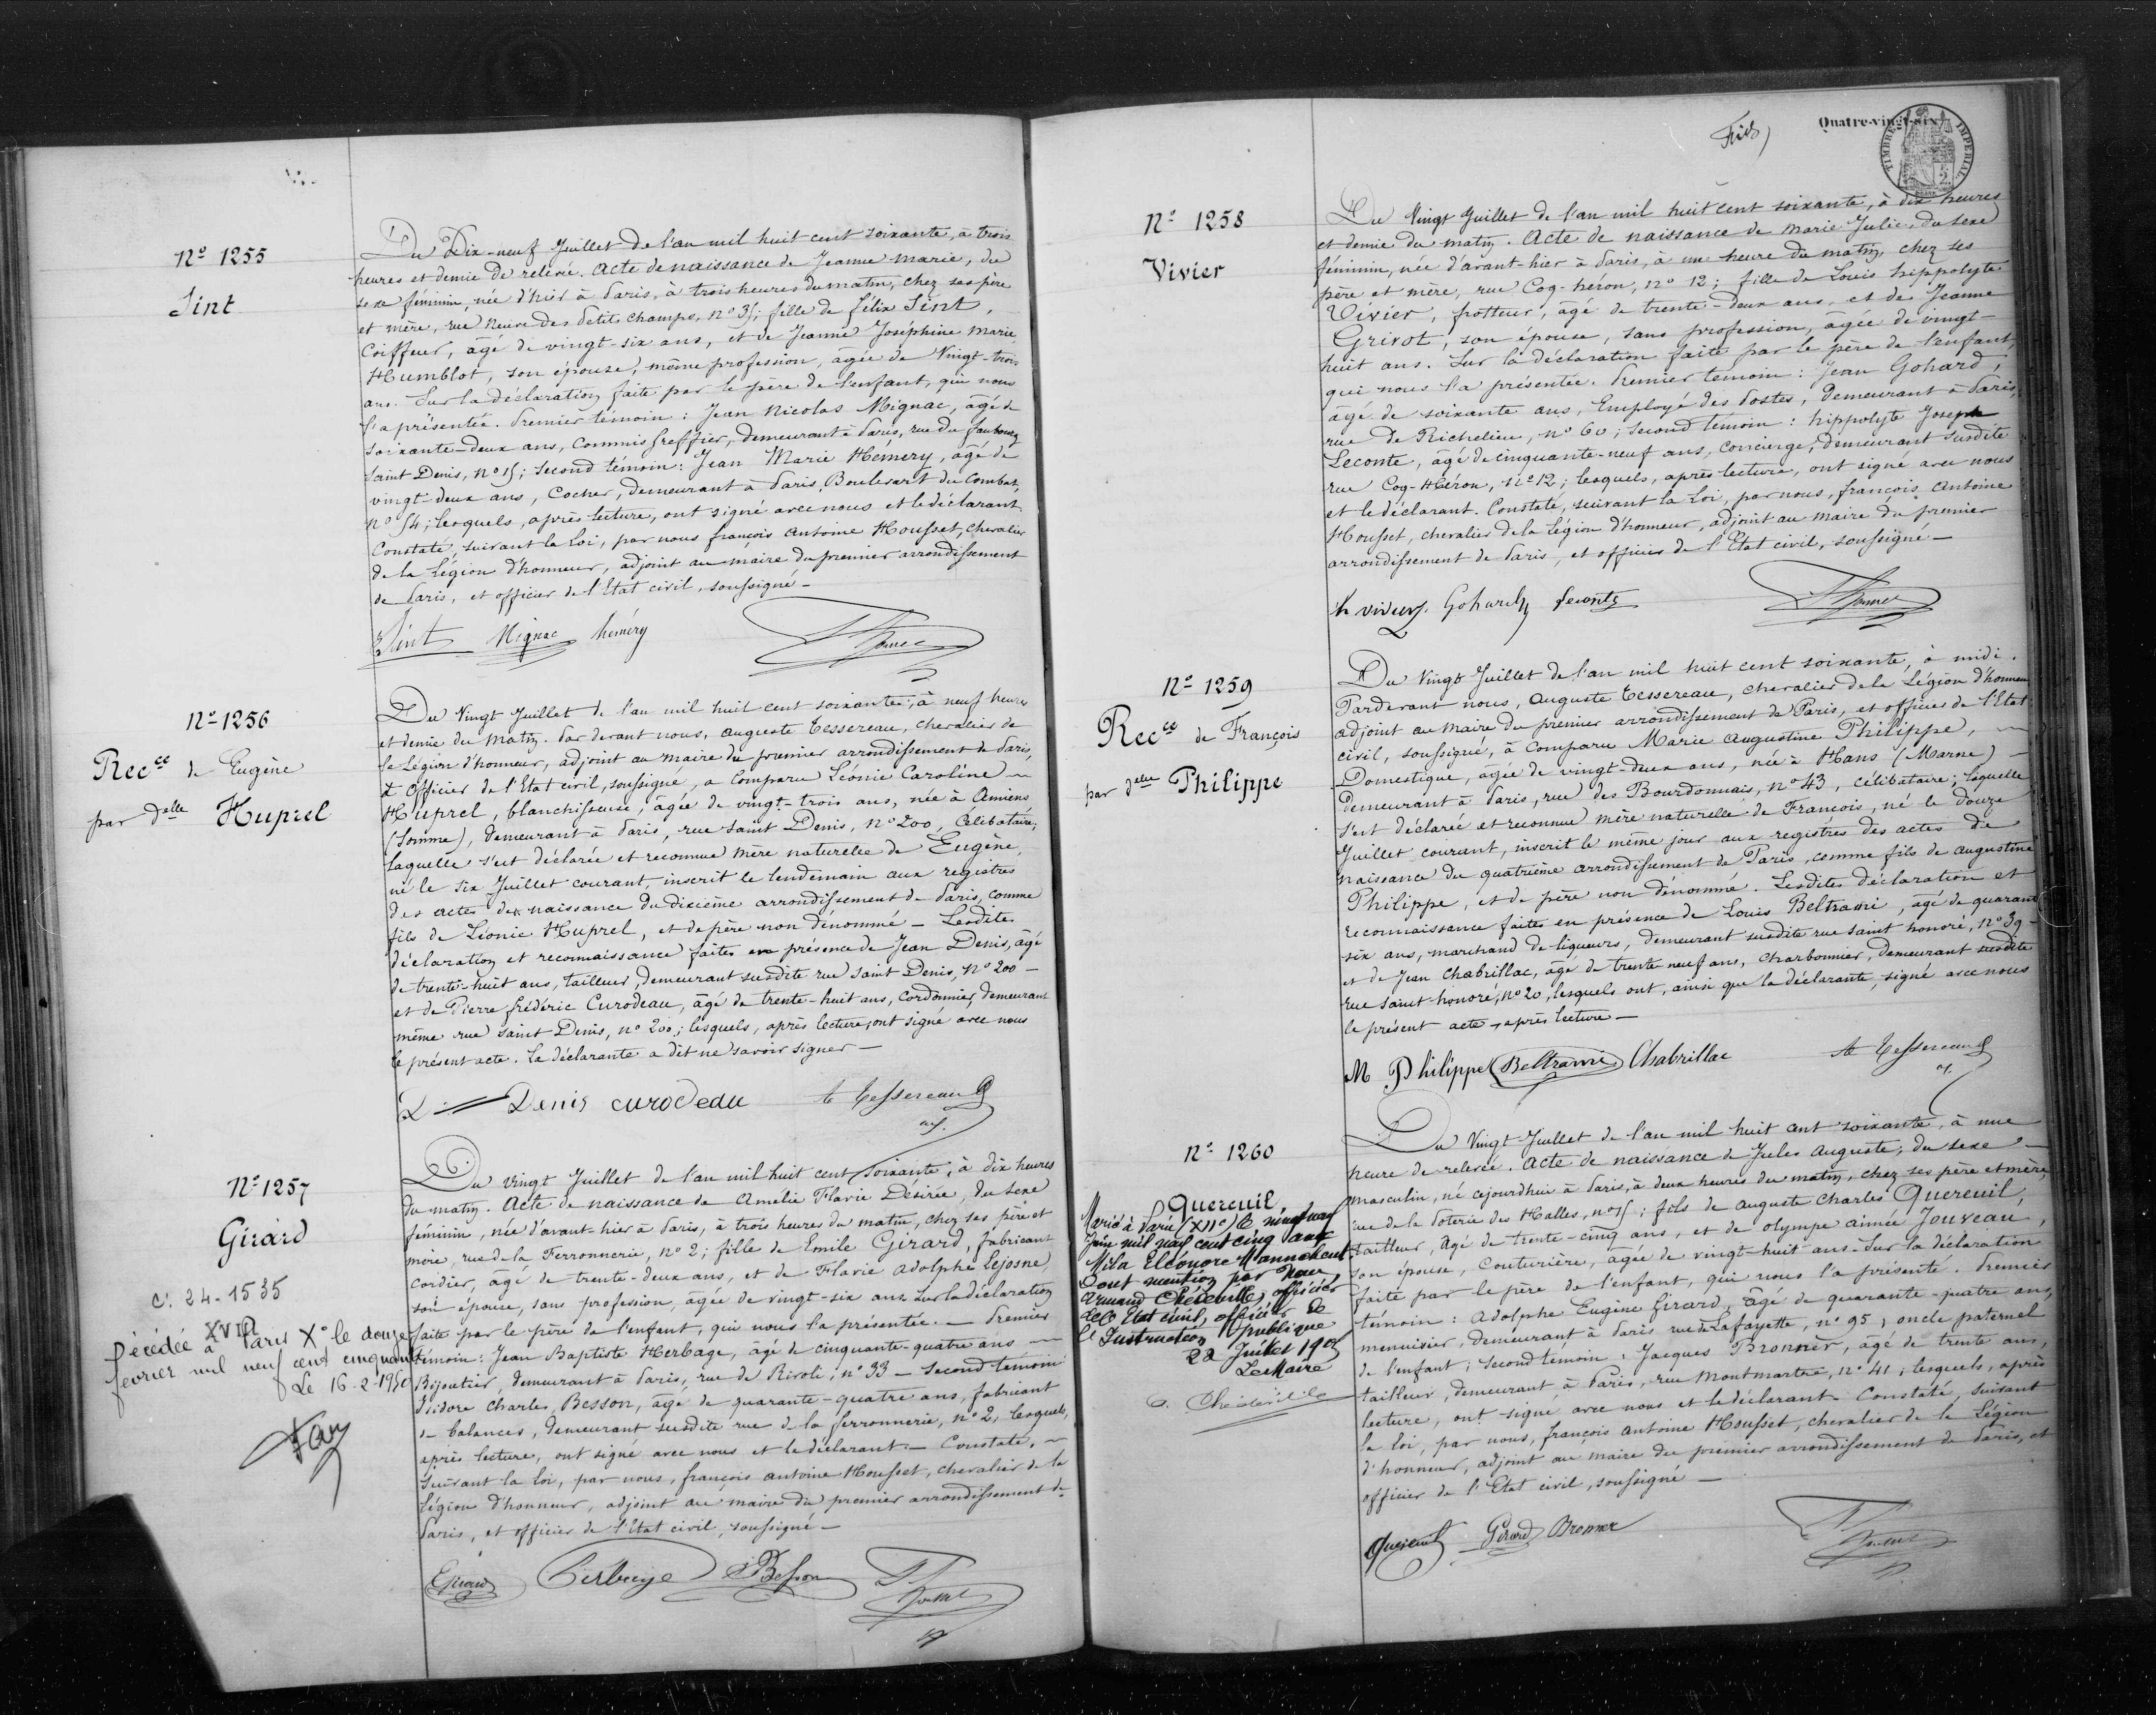 Nº 1255
Sint
Du Dix-neuf Juillet de l'an mil huit cent soixante, à trois
heures et demie de relevée. Acte de naissance de Jeanne Marie, du
sexe féminin, née d'hier à Paris, à trois heures du matin, chez ses père
et mère, rue Neuve des Petits Champs, nº 35; fille de Félix Sint,
Coiffeur, âgé de vingt-six ans, et de Jeanne Joséphine Marie
Humblot, son épouse, même profession, âgée de Vingt-trois
ans. Sur la déclaration faite par le père de l'enfant, qui nous
l'a présentée. Premier témoin: Jean Nicolas Mignac, âgé de
soixante-deux ans, Commis Greffier, demeurant à Paris, rue du faubourg
Saint Denis, nº 15; second témoin: Jean Marie Hémery, âgé de
vingt-deux ans, Cocher, demeurant à Paris, Boulevart du Combat,
nº 54; lesquels, après lecture, ont signé avec nous et le déclarant.
Constaté, suivant la loi, par nous françois antoine Housset, chevalier
de la Légion d'honneur, adjoint au maire du premier arrondissement
de Paris, et officier de l'Etat civil, soussigné —
Sint Mignac hémery
Nº 1256
Recce de Eugène
par delle Huprel
Du Vingt Juillet de l'an mil huit cent soixante, à neuf heures
et demie du matin. Par devant nous, auguste Tessereau, chevalier de
la Légion d'honneur, adjoint au maire du premier arrondissement de Paris,
et officier de l'Etat civil, soussigné, a Comparu Léonie Caroline
Huprel, blanchisseuse, âgée de vingt-trois ans, née à Amiens
(Somme), demeurant à Paris, rue Saint Denis, nº 200, Célibataire;
laquelle s'est déclarée et reconnue mère naturelle de Eugène,
né le six Juillet courant, inscrit le lendemain aux registres
des actes de naissance du dixième arrondissement de Paris, comme
fils de Léonie Huprel, et de père non dénommé — Lesdites
déclaration et reconnaissance faites en présence de Jean Denis, âgé
de trente-huit ans, tailleur, demeurant susdite rue Saint Denis, nº 200 —
et de Pierre frédéric Curodeau, âgé de trente-huit ans, cordonnier, demeurant
même rue Saint Denis, nº 200; lesquels, après lecture, ont signé avec nous
le présent acte. La déclarante a dit ne savoir signer —
Denis curodeau A Tessereau
Nº 1257
Girard
C. 24-1535
Décédée à Paris Xº le douze
XVIII
février mil neuf cent cinquante
Le 16-2-1950
Du vingt Juillet de l'an mil huit cent soixante, à dix heures
du matin. Acte de naissance de Amélie Flavie Désirée, du sexe
féminin, née d'avant-hier à Paris, à trois heures du matin, chez ses père et
mère, rue de la Ferronnerie, nº 2; fille de Emile Girard, fabricant
cordier, âgé de trente-deux ans, et de Flavie adolphe Lejosne,
son épouse, sans profession, âgée de vingt-six ans. Sur la déclaration
faite par le père de l'enfant, qui nous l'a présentée. — Premier
témoin: Jean Baptiste Herbage, âgé de cinquante-quatre ans
Bijoutier, demeurant à Paris, rue de Rivoli, nº 33 — second témoin
Isidore Charles, Besson, âgé de quarante-quatre ans, fabricant
de balances, demeurant susdite rue de la ferronnerie, nº 2, lesquels,
après lecture, ont signé avec nous et le déclarant. — Constaté,
Suivant la loi, par nous, françois antoine Housset, chevalier de la
Légion d'honneur, adjoint au maire du premier arrondissement de
Paris, et officier de l'Etat civil, soussigné —
EGirard herbage Besson
Quatre-vingt-six
TIMBRE IMPERIAL
Nº 1258
Vivier
Du Vingt Juillet de l'an mil huit cent soixante, à dix heures
et demie du matin. Acte de naissance de Marie Julie, du sexe
féminin, née d'avant-hier à Paris, à une heure du matin, chez ses
père et mère, rue Coq-héron, nº 12; fille de Louis hippolyte
Vivier, frotteur, âgé de trente-deux ans, et de Jeanne
Grivot, son épouse, sans profession, âgée de vingt-
huit ans. Sur la déclaration faite par le père de l'enfant,
qui nous l'a présentée. Premier témoin: Jean Gohard,
âgé de soixante ans, Employé des Postes, demeurant à Paris,
rue de Richelieu, nº 60; second témoin: hippolyte Joseph
Leconte, âgé de cinquante-neuf ans, concierge, demeurant susdite
rue Coq-Héron, nº 12; lesquels, après lecture, ont signé avec nous
et le déclarant. Constaté, suivant la loi, par nous, françois Antoine
Housset, chevalier de la Légion d'honneur, adjoint au maire du premier
arrondissement de Paris, et officier de l'Etat civil, soussigné —
h vivier Gohard Leconte
Nº 1259
Recce de François
par delle Philippe
Du Vingt Juillet de l'an mil huit cent soixante, à midi.
Pardevant nous, Auguste Tessereau, chevalier de la Légion d'honneur
adjoint au Maire du premier arrondissement de Paris, et officier de l'Etat
civil, soussigné, à Comparu Marie Augustine Philippe,
Domestique, âgée de vingt-deux ans, née à Hans (Marne) —
demeurant à Paris, rue des Bourdonnais, nº 43, célibataire; laquelle
s'est déclarée et reconnue mère naturelle de François, né le douze
Juillet courant, inscrit le même jour aux registres des actes de
naissance du quatrième arrondissement de Paris, comme fils de augustine
Philippe, et de père non dénommé. Lesdites déclaration et
reconnaissance faites en présence de Louis Beltrami, âgé de quarante
six ans, marchand de liqueurs, demeurant susdite rue saint honoré, nº 39 —
et de Jean Chabrillac, âgé de trente neuf ans, Charbonnier, demeurant susdite
rue saint-honoré, nº 20, lesquels ont, ainsi que la déclarante, signé avec nous
le présent acte, après lecture —
M Philippe Beltrami Chabrillac A Tessereau
Nº 1260
Quereuil
Marié à Paris (XIIe) le vingt neuf
Juin mil neuf cent cinq avec
Mila Eléonore
Dont mention par Nous
Armand officier
de l'Etat civil, officier de
l'Instruction Publique
22 Juillet 1905
Le Maire
Du Vingt Juillet de l'an mil huit cent soixante, à une
heure de relevée. Acte de naissance de Jules Auguste, du sexe —
masculin, né cejourdhui à Paris, à deux heures du matin, chez ses père et mère,
rue de la Poterie des Halles, nº 15; fils de Auguste Charles Quereuil,
tailleur, âgé de trente-cinq ans, et de olympe aimée Jouveau,
son épouse, Couturière, âgée de vingt-huit ans. Sur la déclaration
faite par le père de l'enfant, qui nous l'a présenté. Premier
témoin: Adolphe Eugène Girard, âgé de quarante-quatre ans,
menuisier, demeurant à Paris rue de Lafayette, nº 95, oncle paternel
de l'enfant; second témoin: Jacques Bronner, âgé de trente ans,
tailleur, demeurant à Paris, rue Montmartre, nº 41; lesquels, après
lecture, ont signé avec nous et le déclarant. Constaté, suivant
la loi, par nous, françois Antoine Housset, chevalier de la Légion
d'honneur, adjoint au maire du premier arrondissement de Paris, et
officier de l'Etat civil, soussigné —
Quereuil Girard Bronner